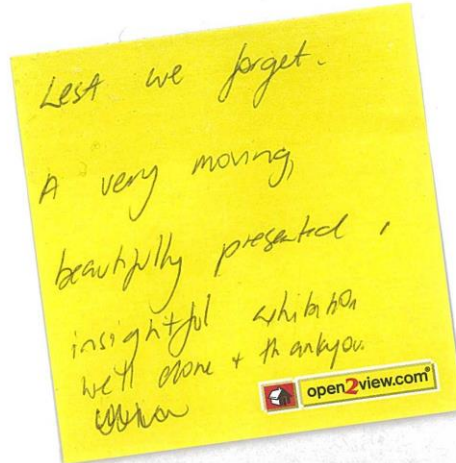 Lest we forget.
A very moving,
beautifully presented,
insightful exhibition
well done + thankyou.
open2view.com®